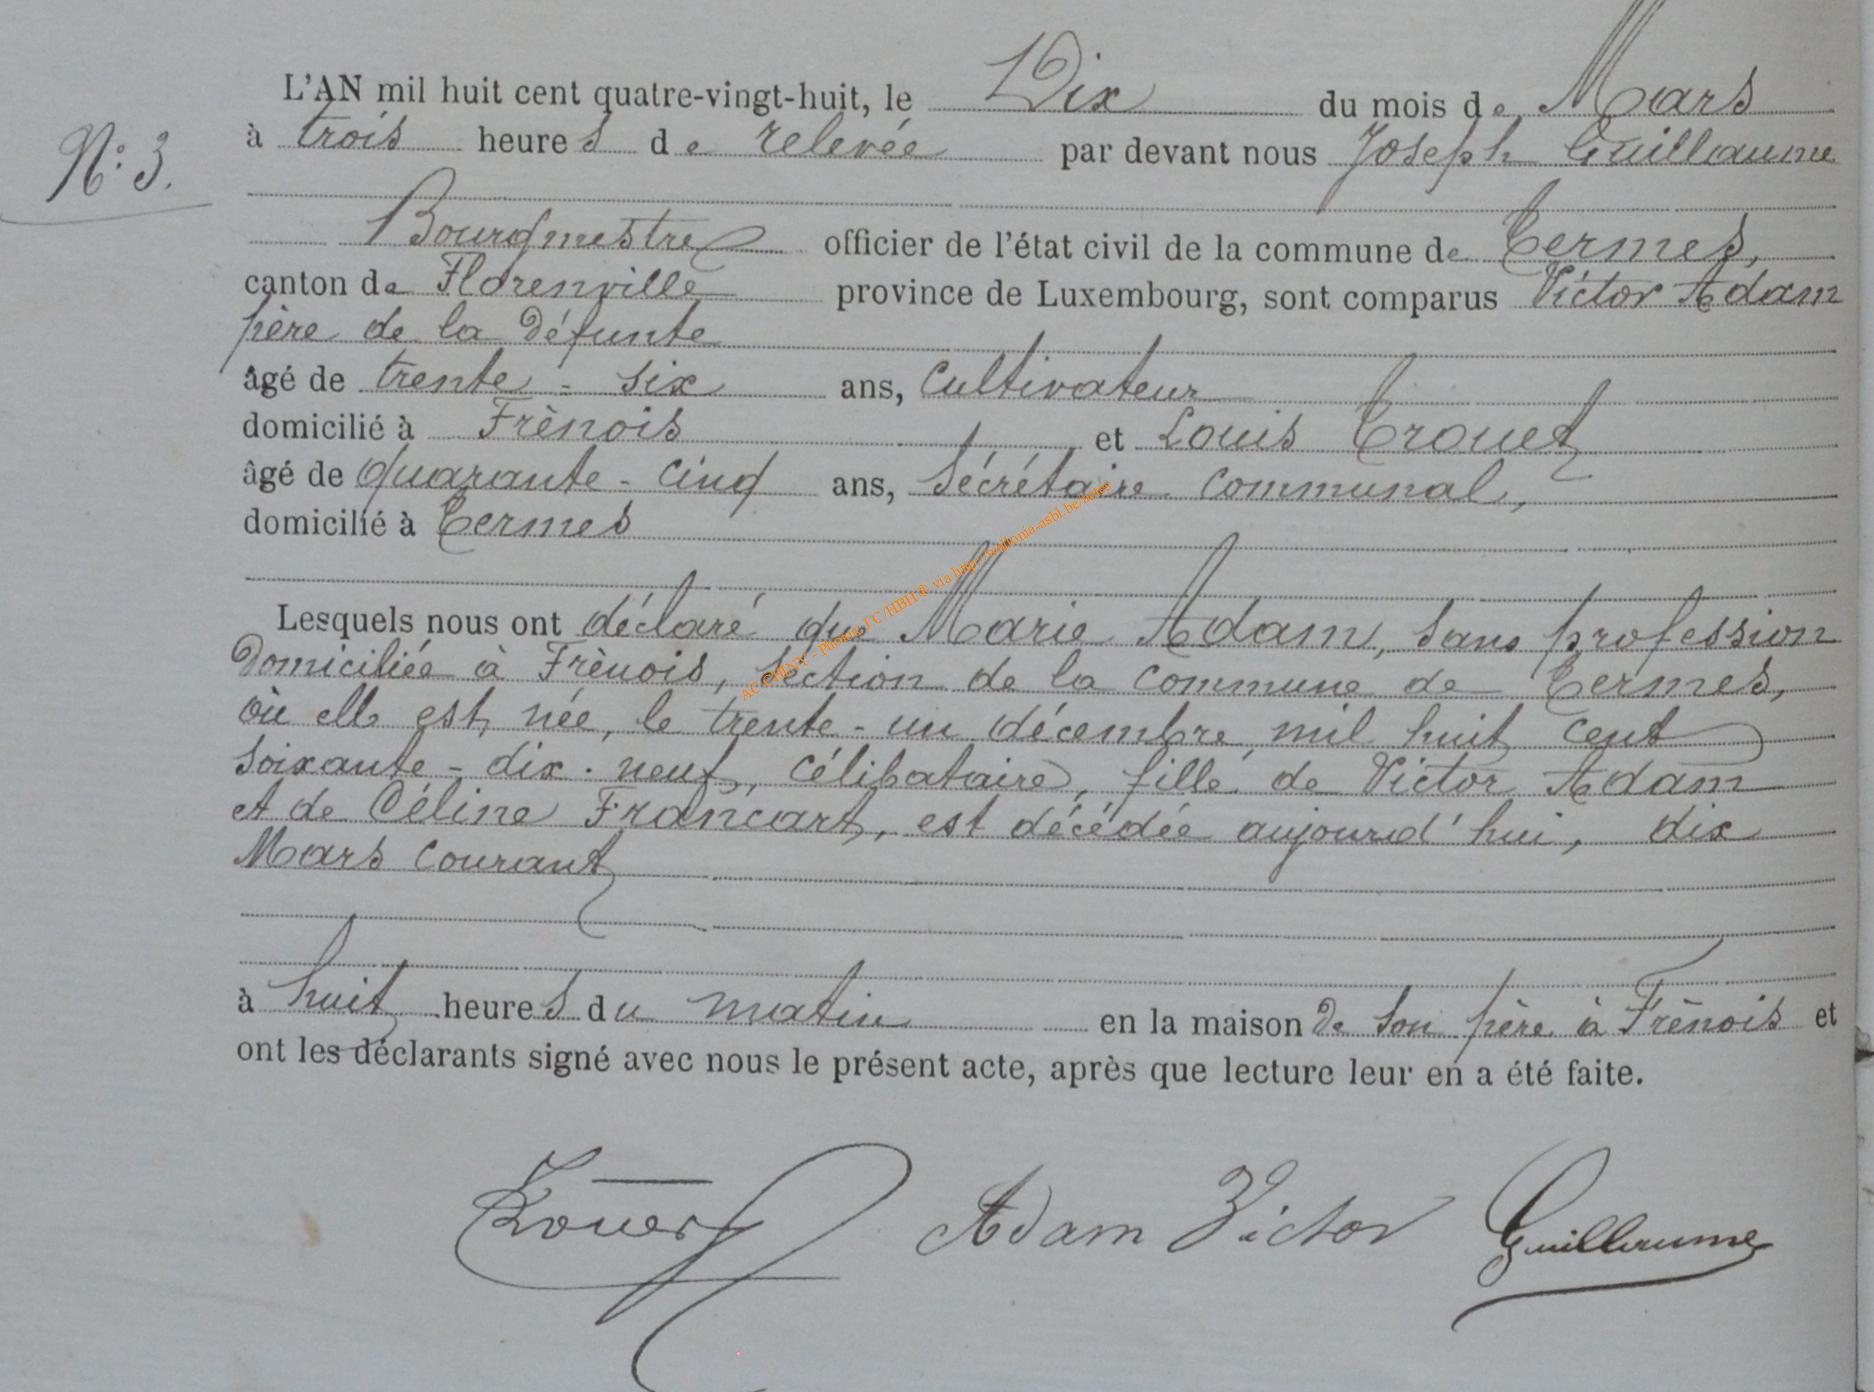 N° 3.
L'AN mil huit cent quatre-vingt-huit, le Dix du mois de Mars
à trois heures de relevée par devant nous Joseph Guillaume
Bourgmestre officier de l'état civil de la commune de Termes,
canton de Florenville province de Luxembourg, sont comparus Victor Adam
père de la défunte
âgé de trente-six ans, Cultivateur
domicilié à Frènois et Louis Trouet
âgé de quarante-cinq ans, Sécrétaire Communal,
domicilié à Termes
Lesquels nous ont déclaré que Marie Adam, sans profession
Domiciliée à Frènois, section de la commune de Termes,
où elle est née, le trente-un décembre mil huit cent
soixante-dix-neuf, célibataire, fille de Victor Adam
et de Céline Francart, est décédée aujourd'hui, dix
Mars courant
à huit heures du matin en la maison de son père à Frènois et
ont les déclarants signé avec nous le présent acte, après que lecture leur en a été faite.
Trouet Adam Victor Guillaume